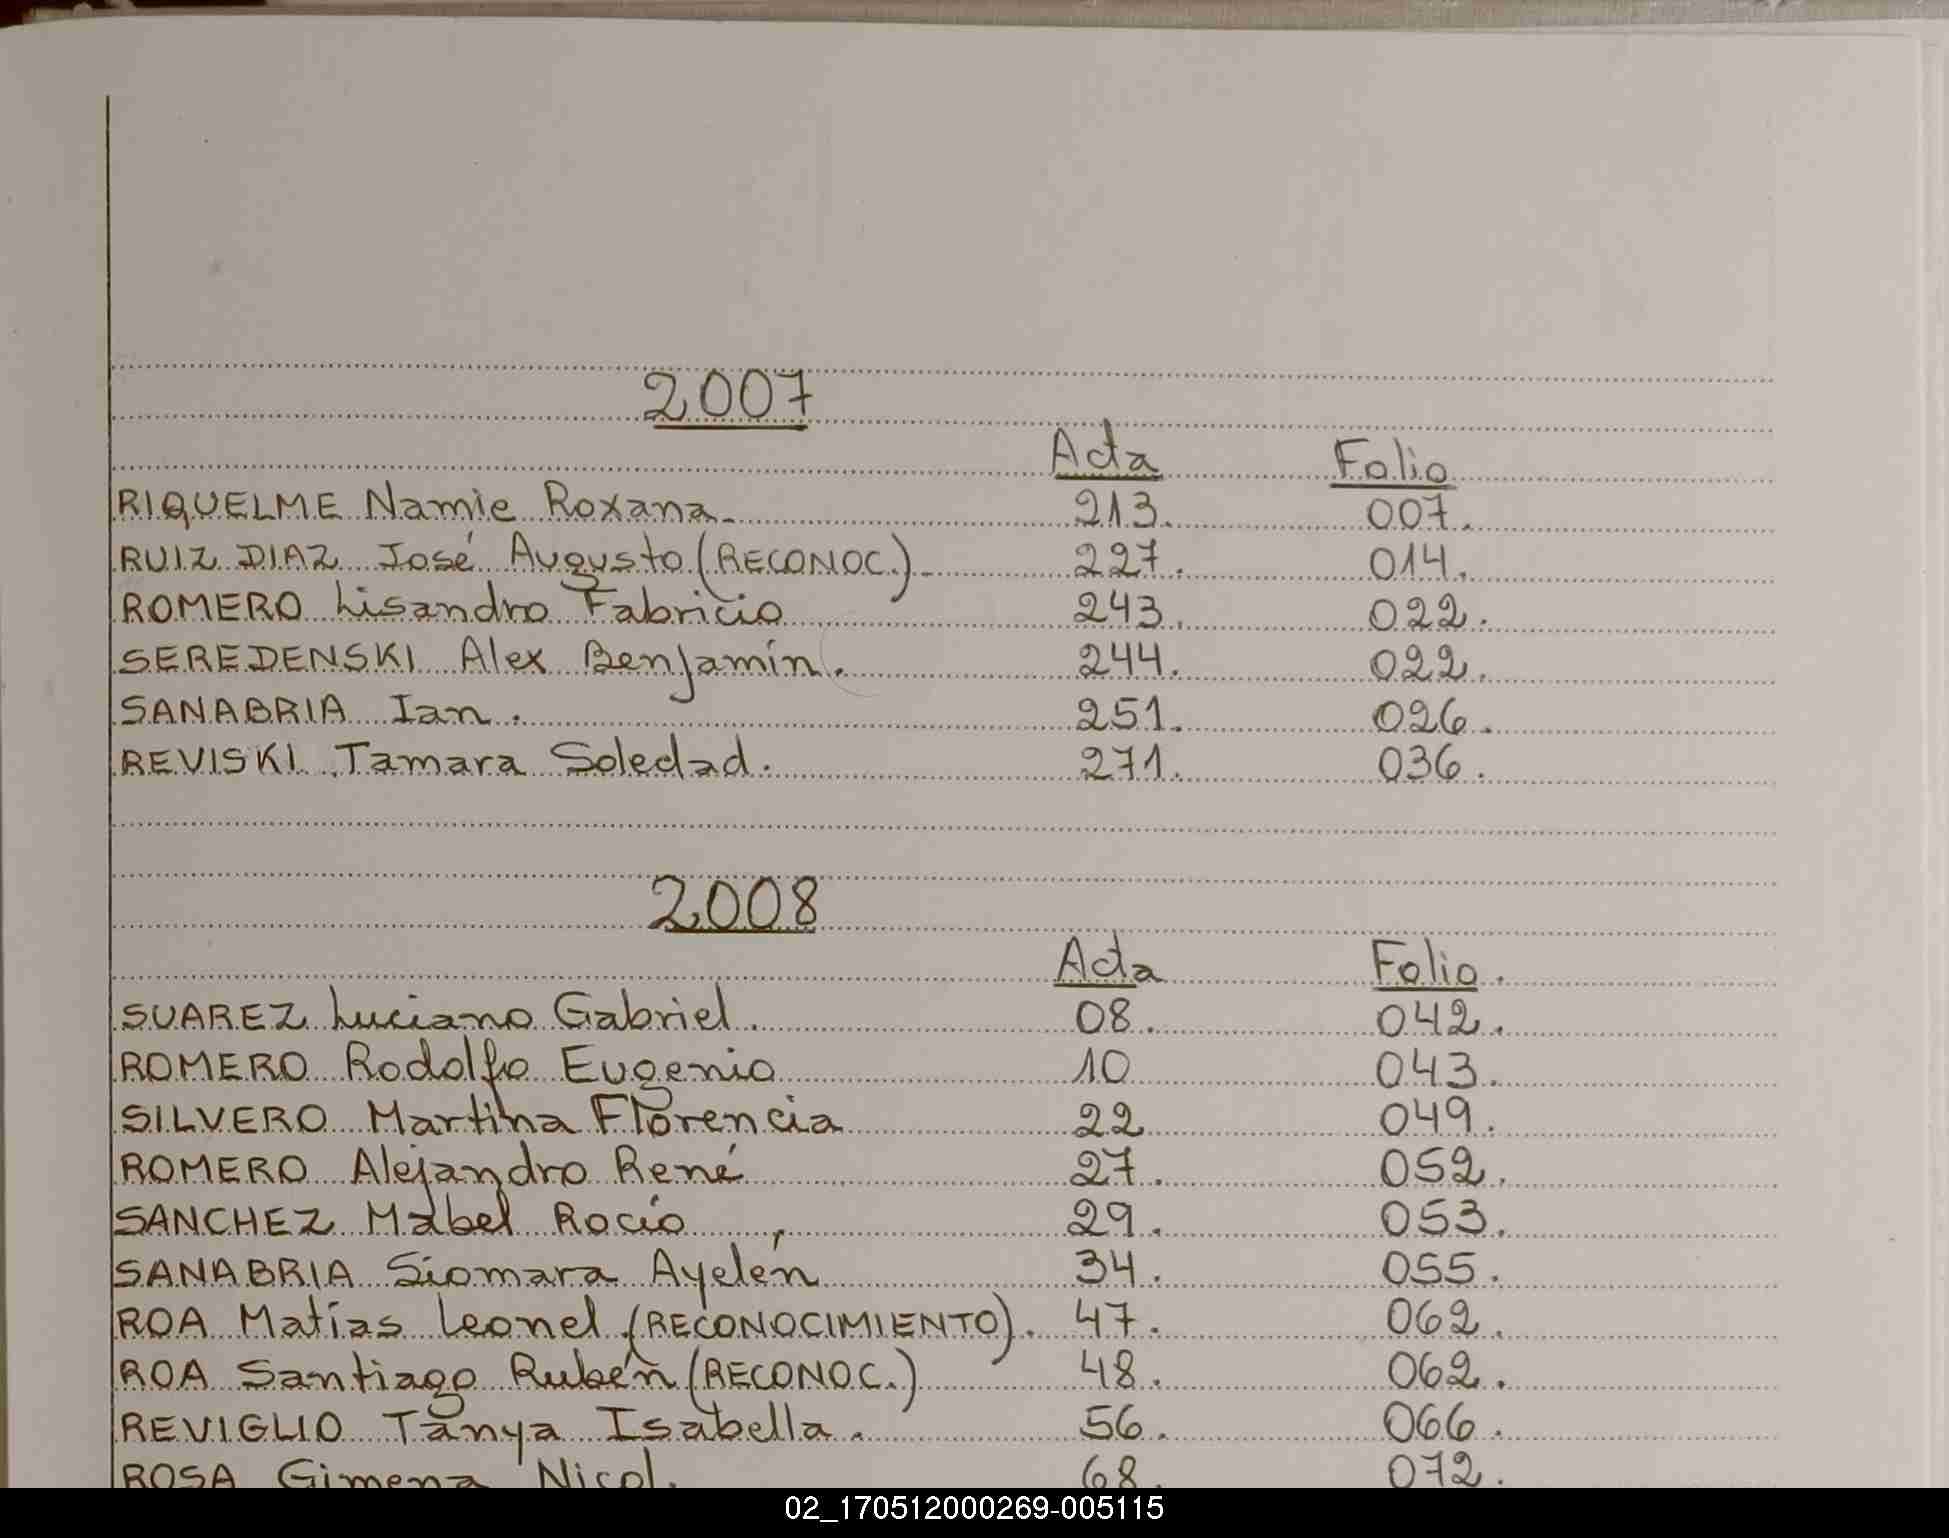 2007
Acta Folio
RIQUELME Namie Roxana. 213. 007.
RUIZ DIAZ José Augusto (RECONOC.). 227. 014.
ROMERO Lisandro Fabricio 243. 022.
SEREDENSKI Alex Benjamín. 244. 022.
SANABRIA Ian. 251. 026.
REVISKI Tamara Soledad. 271. 036.
2008
Acta Folio.
SUAREZ Luciano Gabriel. 08. 042.
ROMERO Rodolfo Eugenio 10 043.
SILVERO Martina Florencia 22 049.
ROMERO Alejandro René 27. 052.
SANCHEZ Mabel Rocío 29. 053.
SANABRIA Siomara Ayelén 34. 055.
ROA Matías Leonel (RECONOCIMIENTO). 47. 062.
ROA Santiago Rubén (RECONOC.) 48. 062.
REVIGLIO Tanya Isabella. 56. 066.
ROSA Gimena Nicol. 68. 072.
02_170512000269-005115